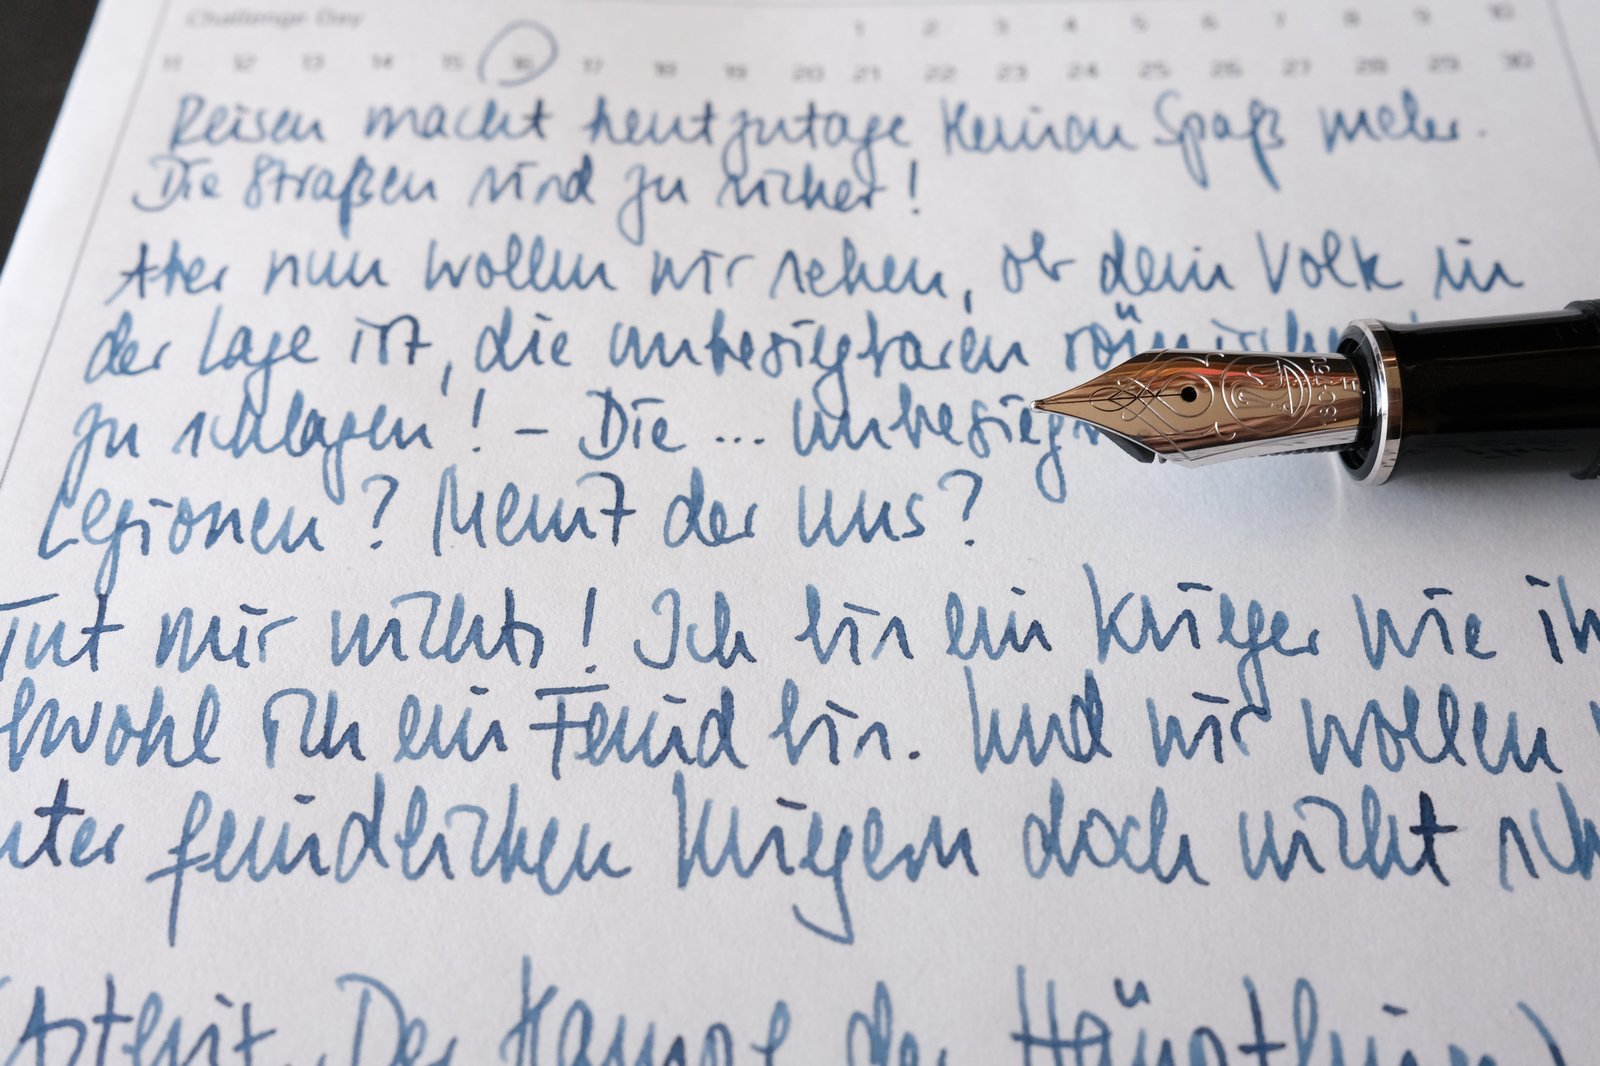 Challenge Day 1 2 3 4 5 6 7 8 9 10
11 12 13 14 15 16 17 18 19 20 21 22 23 24 25 26 27 28 29 30
Reisen macht heutzutage keinen Spaß mehr.
Die Straßen sind zu sicher!
Aber nun wollen wir sehen, ob dein Volk in
der Lage ist, die unbesiegbaren römischen
zu schlagen! – Die ... unbesiegb
Legionen? Meint der uns?
Tut mir nichts! Ich bin ein Krieger wie ih
bwohl ich ein Feind bin. Und wir wollen
nter feindlichen Kriegern doch nicht sch
(Asterix, Der Kampf der Häuptlinge)